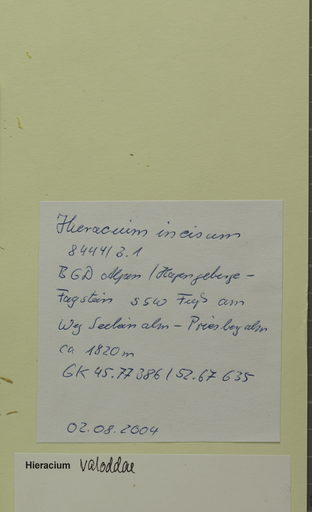 Hieracium incisum
8444/3.1
BGD Alpen / Hagengebirge -
Fagstein SSW Fuß am
Weg Seeleinalm - Priesbergalm
ca 1820 m
GK 45.77 386 / 52.67 635
02.08.2004
Hieracium valoddae